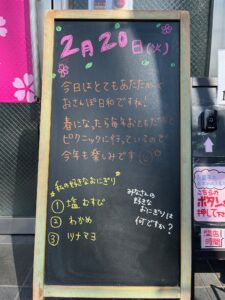 2月20日(火)
今日はとてもあたたかくて
おさんぽ日和ですね!
春になったら毎年おともだちと
ピクニックに行っているので
今年も楽しみです
私の好きなおにぎり
① 塩むすび
② わかめ
③ ツナマヨ
みなさんの
好きな
おにぎりは
何ですか?
こちらの
ボタンを
押して下さい
開店
時間